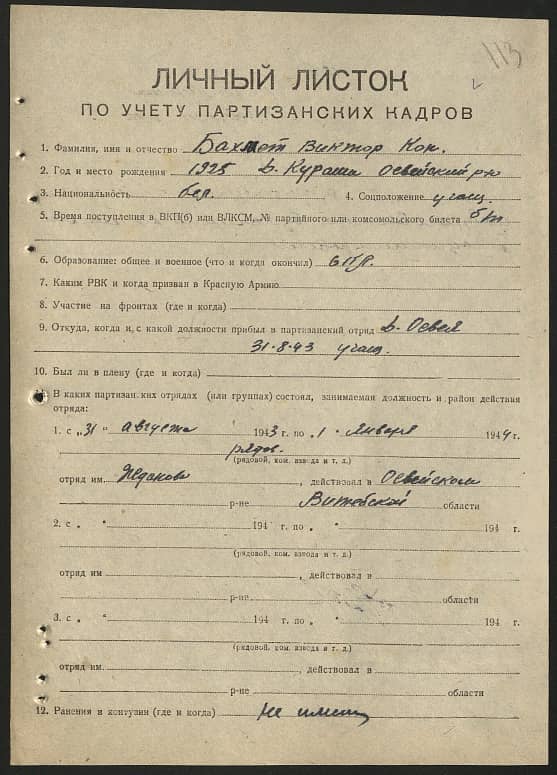 113
ЛИЧНЫЙ ЛИСТОК
ПО УЧЕТУ ПАРТИЗАНСКИХ КАДРОВ
1. Фамилия, имя и отчество Бахмет Виктор Кон.
2. Год и место рождения 1925 д. Кураши Освейский р-н
3. Национальность бел. 4. Соцположение учащ.
5. Время поступления в ВКП(б) или ВЛКСМ, № партийного или комсомольского билета б/п
6. Образование: общее и военное (что и когда окончил)
7. Каким РВК и когда призван в Красную Армию
8. Участие на фронтах (где и когда)
9. Откуда, когда и с какой должности прибыл в партизанский отряд д. Освея
31-8-43 учащ.
10. Был ли в плену (где и когда)
11. В каких партизанских отрядах (или группах) состоял, занимаемая должность и район действия
отряда:
1. с „31" августа 1943 г. по „1" января 1944 г.
рядов.
(рядовой, ком. взвода и т. д.)
отряд им , действовал в Освейском
р-не Витебской области
2. с „ " 194 г. по „ " 194 г.
(рядовой, ком. взвода и т. д.)
отряд им , действовал в
р-не области
3. с „ " 194 г. по „ " 194 г.
(рядовой, ком. взвода и т. д.)
отряд им. , действовал в
р-не области
12. Ранения и контузии (где и когда) не имеет